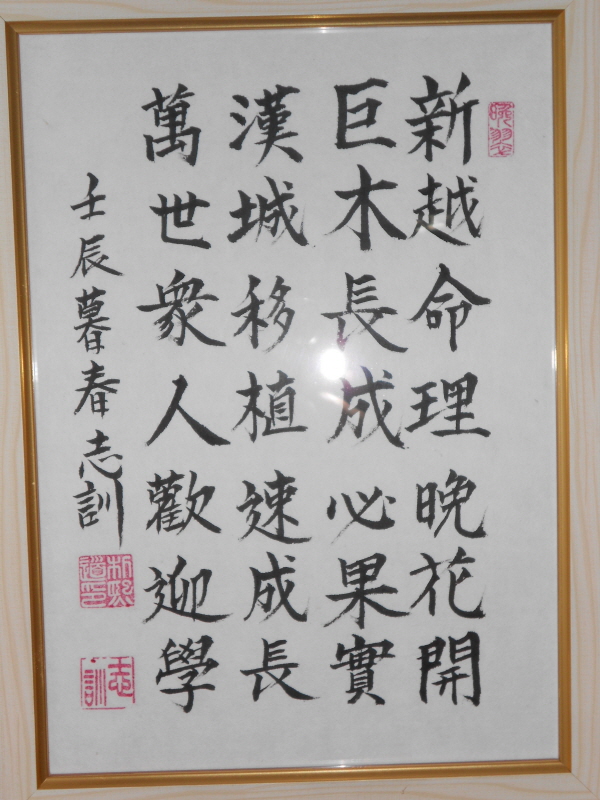 新越命理晚花開
巨木長成必果實
漢城移植速成長
萬世衆人歡迎學
壬辰暮春志訓
志訓